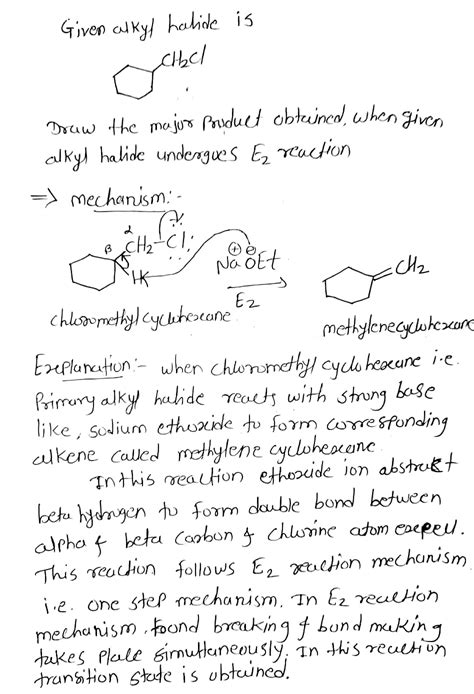 Given alkyl halide is
CH2Cl
Draw the major product obtained, when given
alkyl halide undergoes E2 reaction
⇒ mechanism:-
α
β CH2-Cl:
H
⊕ ⊖
NaOEt
E2
CH2
chloromethylcyclohexane
methylenecyclohexane
Explanation:- when chloromethyl cyclohexane i.e.
Primary alkyl halide reacts with strong base
like, sodium ethoxide to form corresponding
alkene called methylene cyclohexane.
In this reaction ethoxide ion abstrakt
beta hydrogen to form double bond between
alpha & beta carbon & chlorine atom expell.
This reaction follows E2 reaction mechanism
i.e. one step mechanism. In E2 reaction
mechanism, bond breaking & bond making
takes place simultaneously. In this reaction
transition state is obtained.